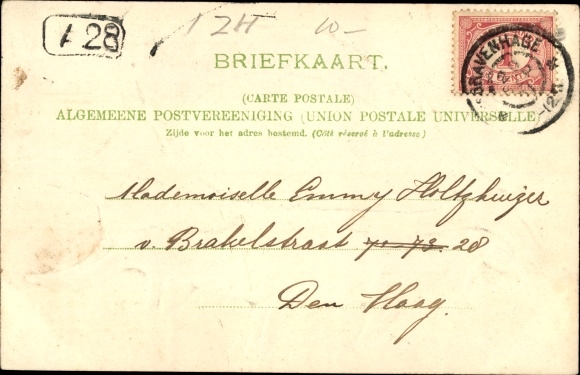 A 28
ZH 10-
BRIEFKAART.
(CARTE POSTALE)
ALGEMEENE POSTVEREENIGING (UNION POSTALE UNIVERSELLE)
Zijde voor het adres bestemd. (Côté réservé à l'adresse)
'S GRAVENHAGE
Mademoiselle Emmy Holtzhuijzer
v. Brakelstraat 28
Den Haag.